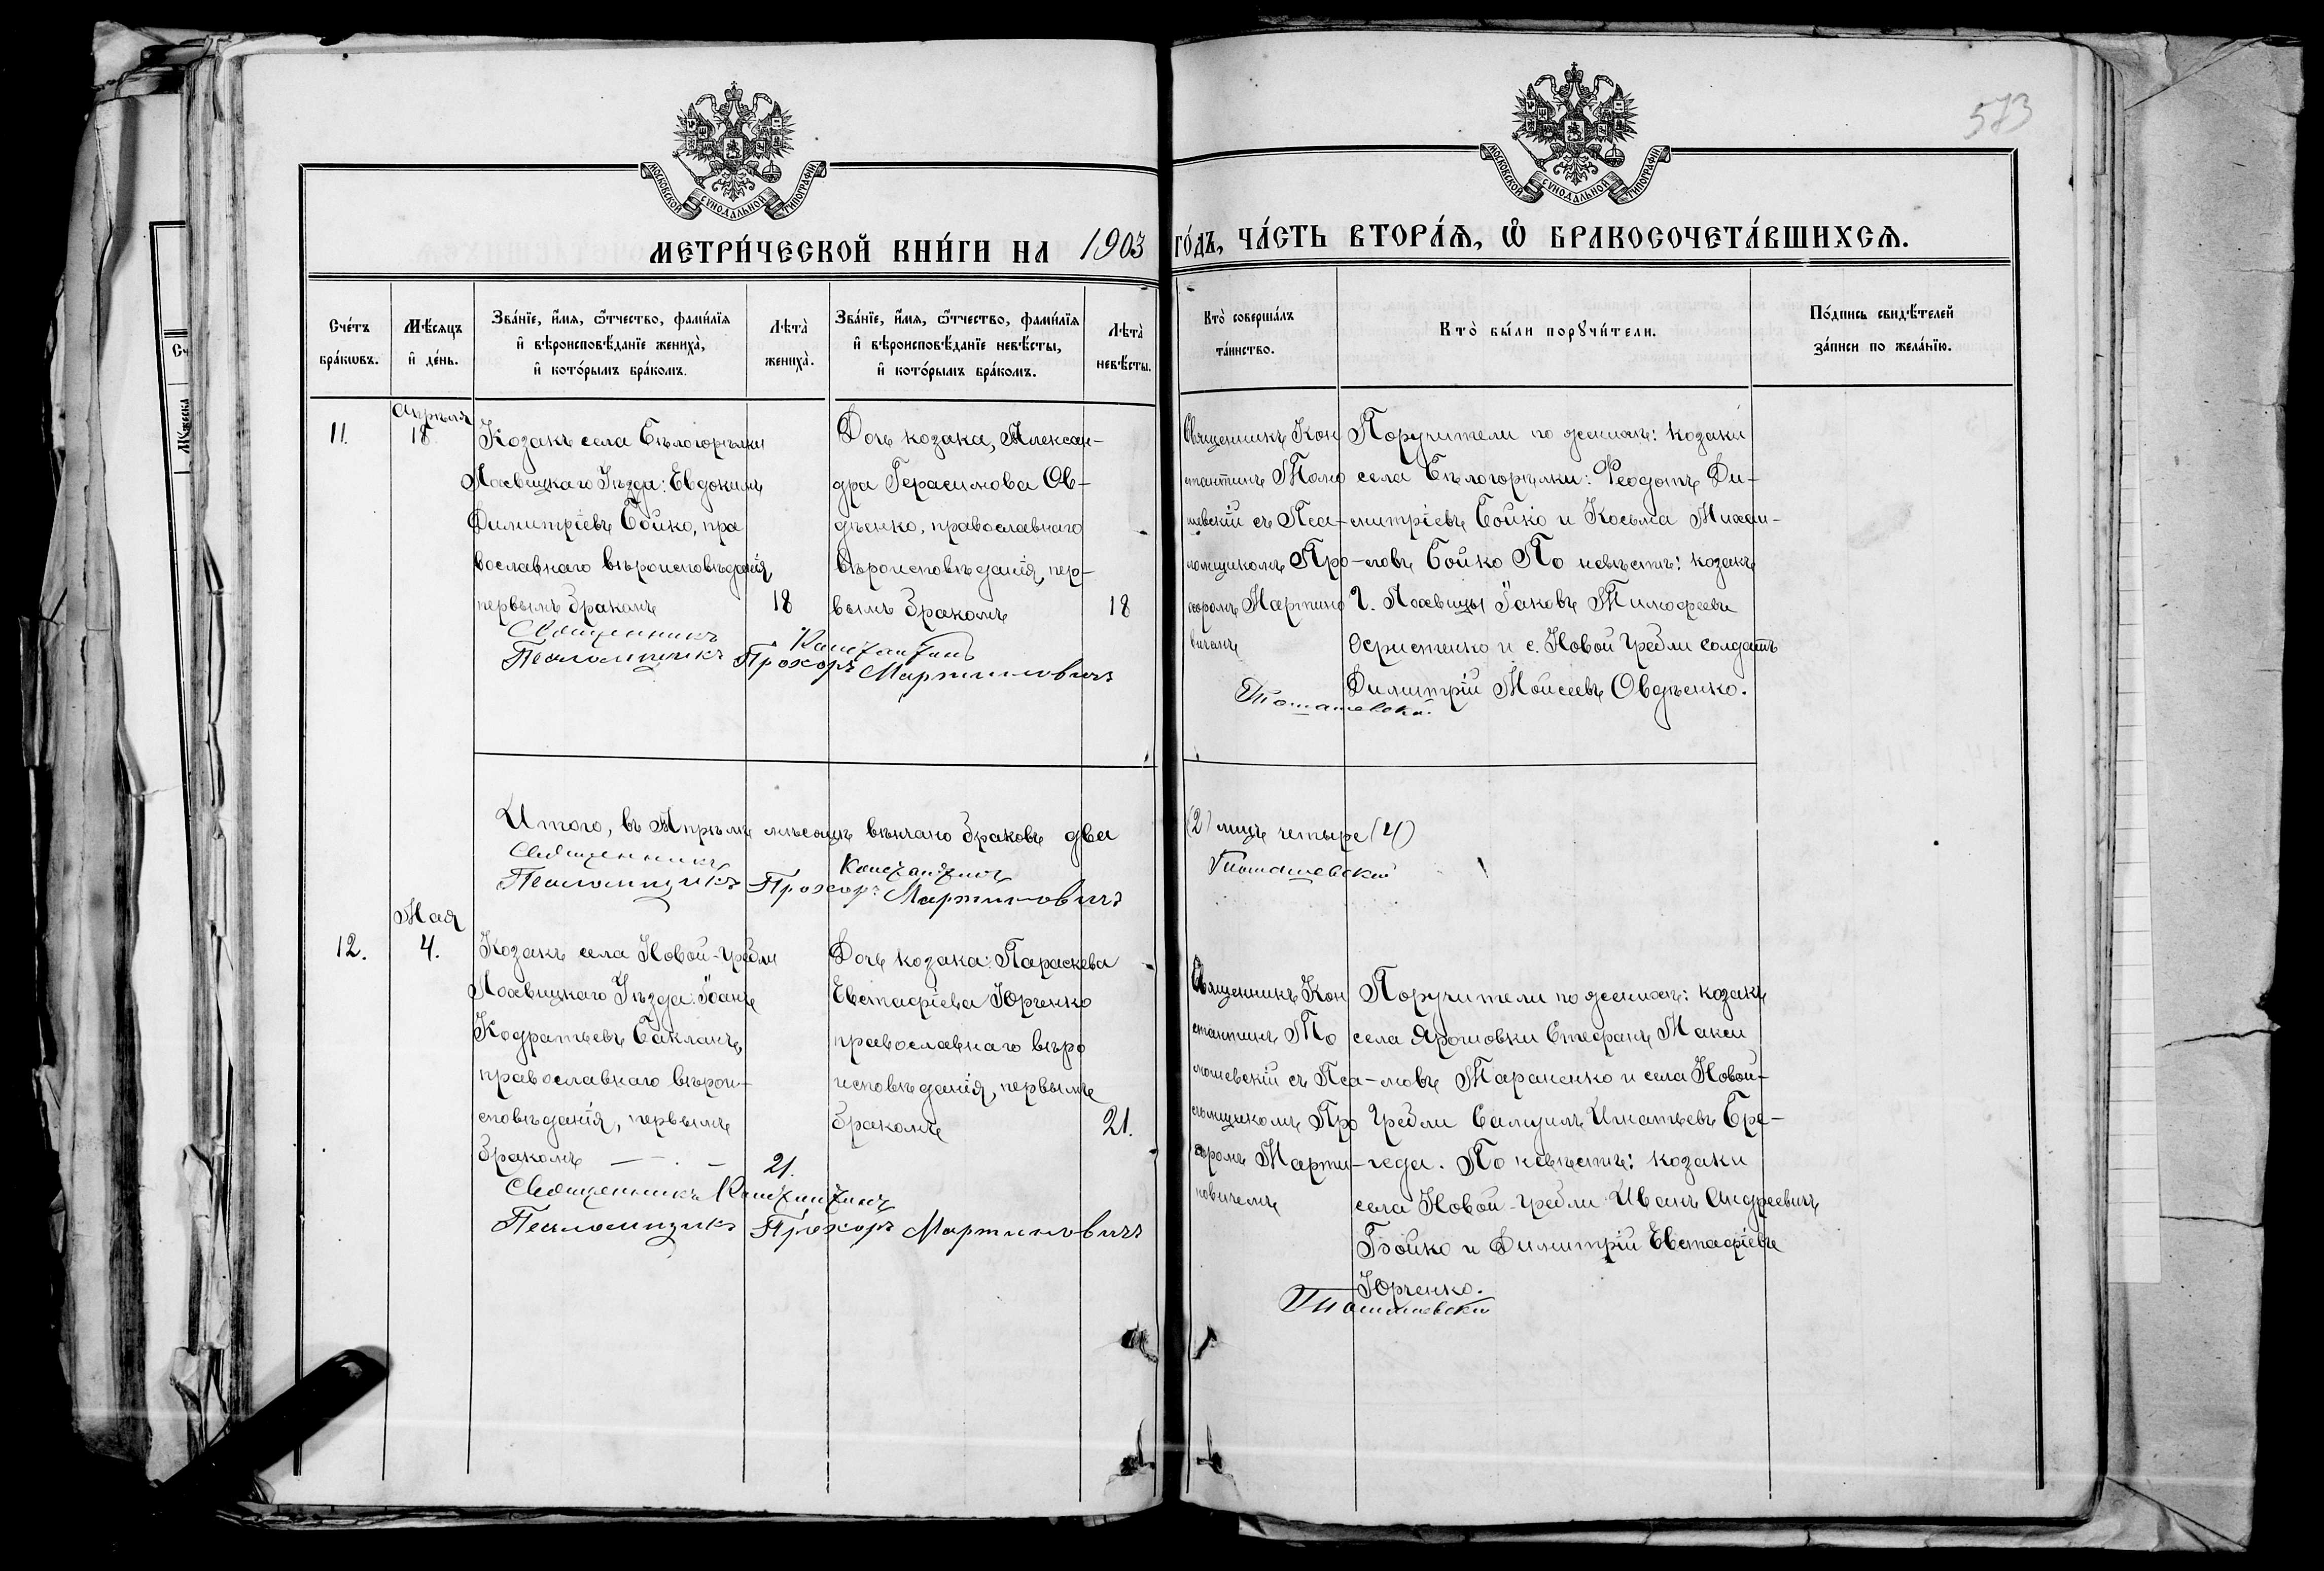 573
МОСКОВСКОЙ СѴНОДАЛЬНОЙ ТИПОГРАФІИ.
МОСКОВСКОЙ СѴНОДАЛЬНОЙ ТИПОГРАФІИ.
МЕТРИ́ЧЕСКОЙ КНИ́ГИ НА 1903
ГО́ДЪ, ЧА́СТЬ ВТОРА́Ѧ, Ѡ҆ БРАКОСОЧЕТА́ВШИХСѦ.
Сче́тъ
бра́кѡвъ.
Мѣ́сяцъ
и҆ де́нь.
Зва́нїе, и҆́мя, ѻ҆́тчество, фами́лїя
и҆ вѣроисповѣ́данїе жениха̀,
и҆ кото́рымъ бра́комъ.
Лѣта̀
жениха̀.
Зва́нїе, и҆́мя, ѻ҆́тчество, фами́лїя
и҆ вѣроисповѣ́данїе невѣ́сты,
и҆ кото́рымъ бра́комъ.
Лѣта̀
невѣ́сты.
Кто̀ соверша́лъ
та́инство.
Кто̀ бы́ли порꙋчи́тели.
По́дпись свидѣ́телей
за́писи по жела́нїю.
11.
Апрѣля
18
Козакъ села Бѣлогорѣлки
Лохвицкаго Уѣзда: Евдокимъ
Димитріевъ Бойко, пра
вославнаго вѣроисповѣданія,
первымъ бракомъ
18
Дочь козака, Алексан-
дра Герасимова Ов-
дѣенко, православнаго
вѣроисповѣданія, пер-
вымъ бракомъ
18
Священникъ Константинъ
Псаломщикъ Прохоръ Мартиновичъ
Священникъ Кон
стантинъ Томо
шевскій съ Пса-
ломщикомъ Про-
хоромъ Мартино
вичемъ
Поручители по женихѣ: козаки
села Бѣлогорѣлки: Феодотъ Ди-
митріевъ Бойко и Косьма Михаи-
ловъ Бойко По невѣстѣ: козакъ
Г. Лохвицы Іаковъ Тимофеевъ
и с. Новой Гребли солдатъ
Димитрій Моисеевъ Овдѣенко.
Томашевскій
Итого, въ Апрѣлѣ мѣсяцѣ вѣнчано браковъ два
(2) лицъ четыре (4)
Священникъ Константинъ
Томашевскій
Псаломщикъ Прохоръ Мартиновичъ
12.
Мая
4.
Козакъ села Новой-Гребли
Лохвицкаго Уѣзда: Іоаннъ
Кодратьевъ Бакланъ,
православнаго вѣрои-
сповѣданія, первымъ
бракомъ — . —
21.
Дочь козака: Параскева
Евстафіева Юрченко
православнаго вѣро
исповѣданія, первымъ
бракомъ
21.
Священникъ Константинъ
Псаломщикъ Прохоръ Мартиновичъ
Священникъ Кон
стантинъ То
мошевскій съ Пса-
ломщикомъ Про
хоромъ Марти-
новичемъ
Поручители по женихѣ: козакъ
села Ярошовки Стефанъ Макси
мовъ Тараненко и села Новой-
Гребли Самуилъ Игнатьевъ Бре-
геда. По невѣстѣ: козаки
села Новой-Гребли Иванъ Андреевичъ
Бойко и Димитрій Евстафіевъ
Юрченко.
Томашевскій